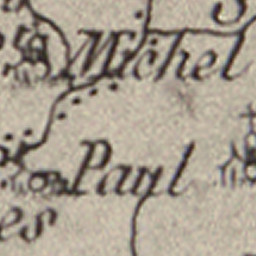 Michel
Paul
es